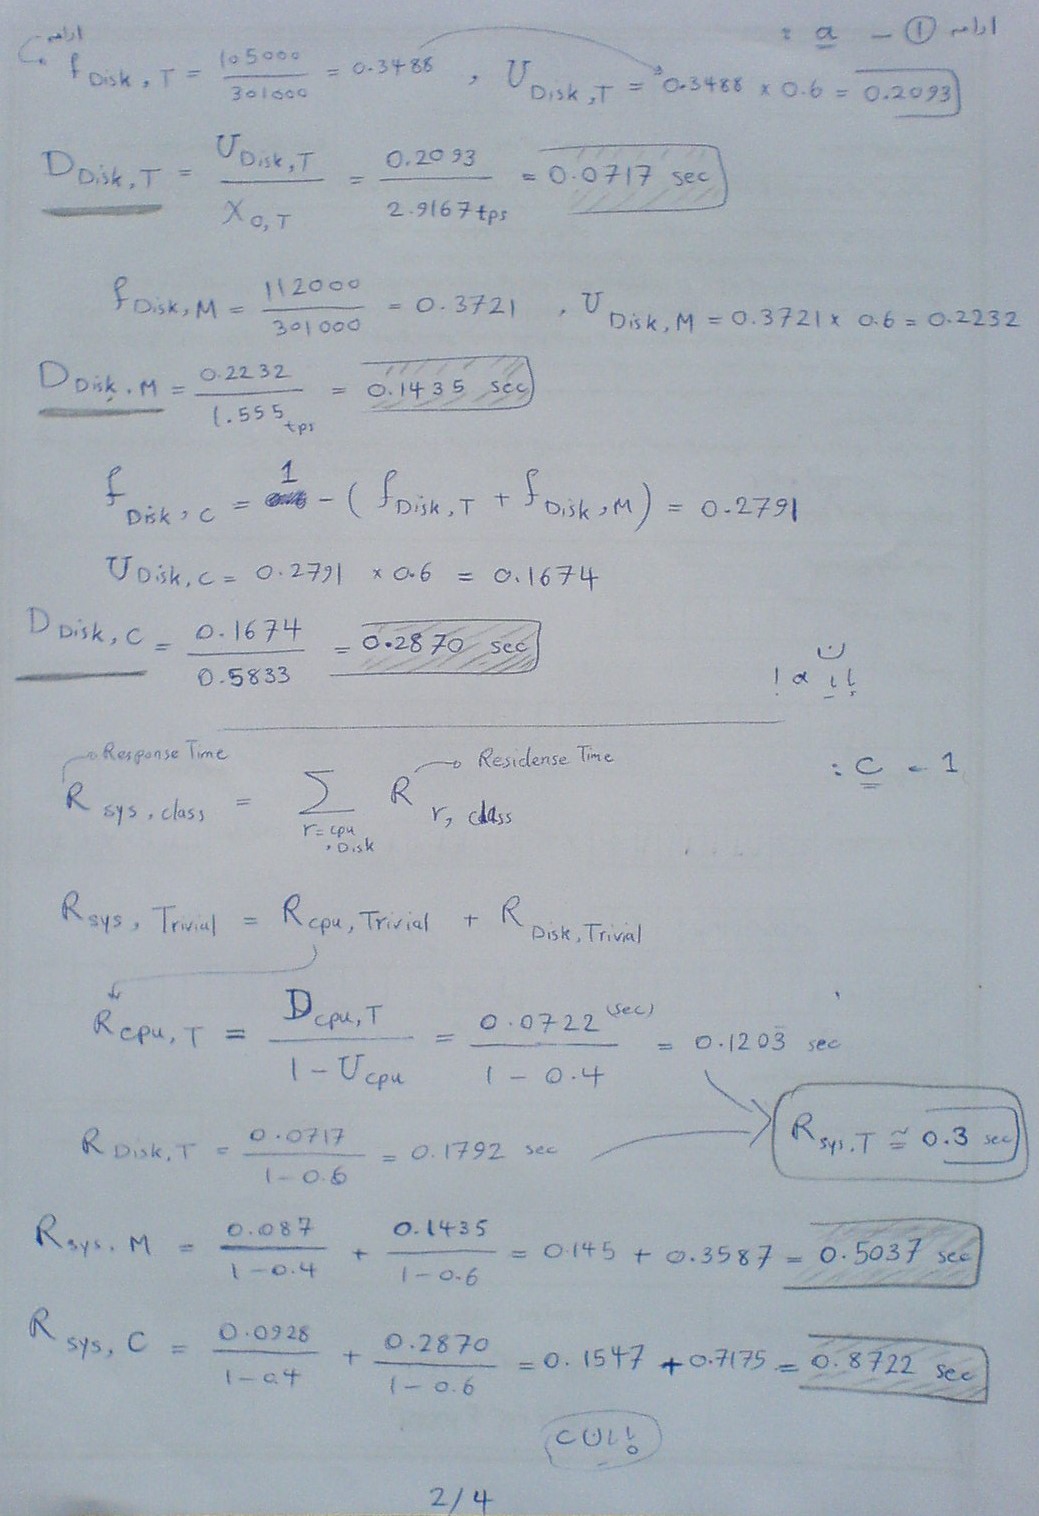 ادامه ① – a :
ادامه
f Disk, T = 105000 / 301000 = 0.3488 , U Disk,T = 0.3488 × 0.6 = 0.2093
D Disk,T = U Disk,T / X 0,T = 0.2093 / 2.9167 tps = 0.0717 sec
f Disk, M = 112000 / 301000 = 0.3721 , U Disk, M = 0.3721 × 0.6 = 0.2232
D Disk, M = 0.2232 / 1.555 tps = 0.1435 sec
f Disk, C = 1 - ( f Disk,T + f Disk,M ) = 0.2791
U Disk, C = 0.2791 × 0.6 = 0.1674
D Disk, C = 0.1674 / 0.5833 = 0.2870 sec
1 - C :
Response Time Residense Time
R sys, class = ∑ r = cpu, Disk R r, class
R sys, Trivial = R cpu, Trivial + R Disk, Trivial
R cpu, T = D cpu, T / 1 - U cpu = 0.0722 (sec) / 1 - 0.4 = 0.1203 sec
R Disk, T = 0.0717 / 1 - 0.6 = 0.1792 sec
R sys, T ≅ 0.3 sec
R sys, M = 0.087 / 1 - 0.4 + 0.1435 / 1 - 0.6 = 0.145 + 0.3587 = 0.5037 sec
R sys, C = 0.0928 / 1 - 0.4 + 0.2870 / 1 - 0.6 = 0.1547 + 0.7175 = 0.8722 sec
2/4